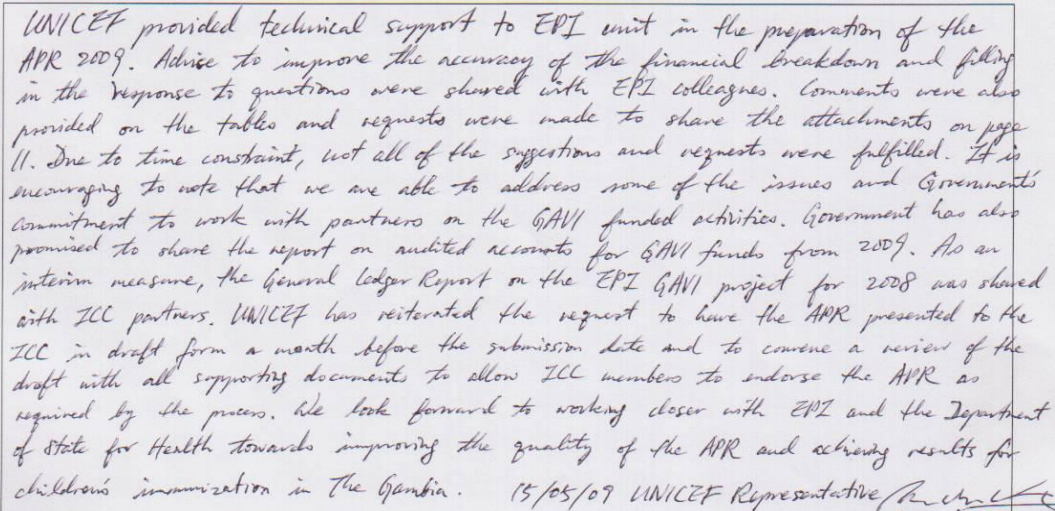 UNICEF provided technical support to EPI unit in the preparation of the
APR 2009. Advise to improve the accuracy of the financial breakdown and filling
in the response to questions were shared with EPI colleagues. Comments were also
provided on the tables and requests were made to share the attachments on page
11. Due to time constraint, not all of the suggestions and requests were fulfilled. It is
encouraging to note that we are able to address some of the issues and Government's
commitment to work with partners on the GAVI funded activities. Government has also
promised to share the report on audited accounts for GAVI funds from 2009. As an
interim measure, the General Ledger Report on the EPI GAVI project for 2008 was shared
with ICC partners. UNICEF has reiterated the request to have the APR presented to the
ICC in draft form a month before the submission date and to convene a review of the
draft with all supporting documents to allow ICC members to endorse the APR as
required by the process. We look forward to working closer with EPI and the Department
of State for Health towards improving the quality of the APR and achieving results for
children's immunization in The Gambia. 15/05/09 UNICEF Representative